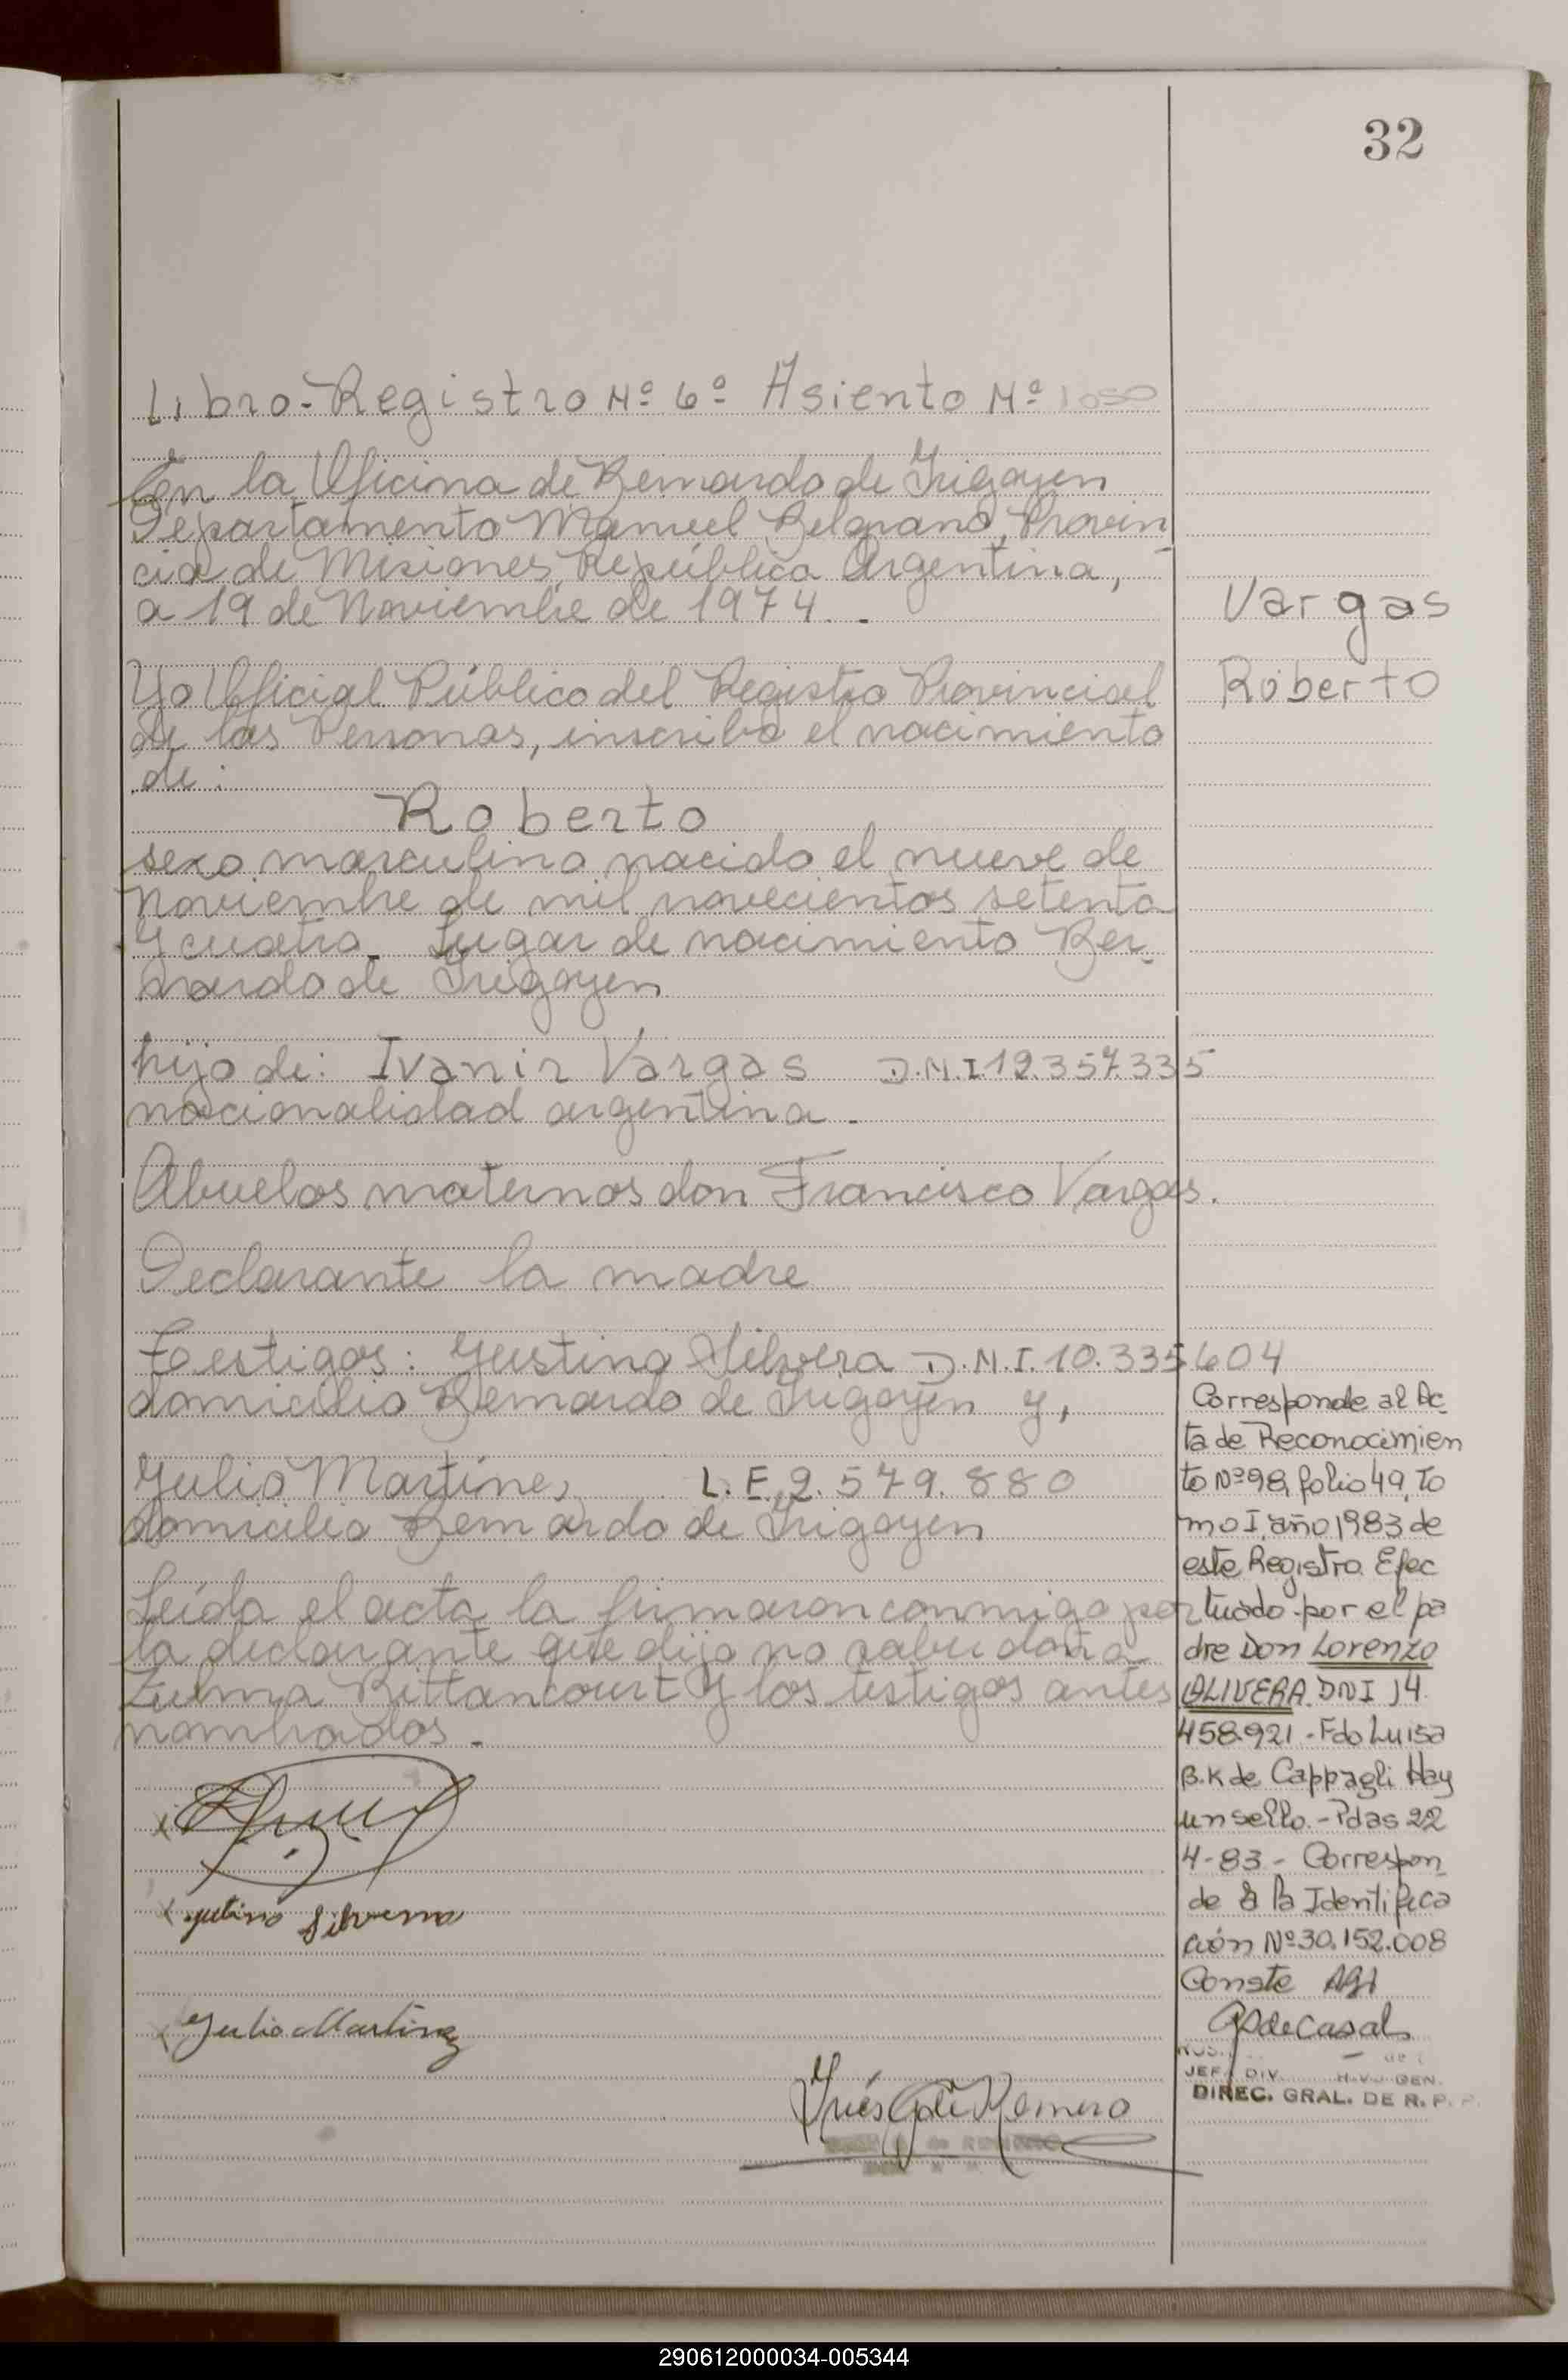 32
Libro-Registro Nº 6º Asiento Nº 1050
En la Oficina de Bernardo de Irigoyen
Departamento Manuel Belgrano, Provin
cia de Misiones, República Argentina,
a 19 de Noviembre de 1974. -
Vargas
Roberto
Yo Oficial Público del Registro Provincial
de las Personas, inscribo el nacimiento
de:
Roberto
sexo masculino nacido el nueve de
Noviembre de mil novecientos setenta
y cuatro. Lugar de nacimiento Ber-
nardo de Irigoyen
hijo de: Ivanir Vargas D.N.I. 12.357.335
nacionalidad argentina -
Abuelos maternos don Francisco Vargas.
Declarante la madre
Testigos: Justino Silvera D.N.I. 10.335604
domicilio Bernardo de Irigoyen y,
Julio Martinez L.E. 2.579.880
domicilio Bernardo de Irigoyen
Leída el acta la firmaron conmigo por
la declarante que dijo no saber doña
Zulma Bittancourt y los testigos antes
nombrados -
Corresponde al Ac
ta de Reconocimien
to Nº 98, folio 49, To
mo I, año 1983 de
este Registro. Efec
tuado - por el pa
dre Don Lorenzo
OLIVERA. DNI 14.
458.921 - Fdo Luisa
B.K de Cappagli Hay
un sello. - Pdas 22
4-83 - Correspon
de a la Identifica
ción Nº 30.152.008
Conste
GdeCasals
JEF. DIV. GEN.
DIREC. GRAL. DE R. P. P.
x
x Justino Silvera
x Julio Martinez
Inés G de Romero
290612000034-005344